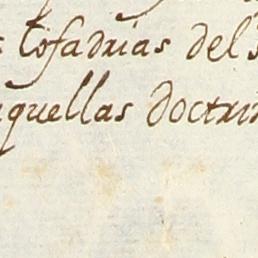 Cofadrias del
aquellas doctrin